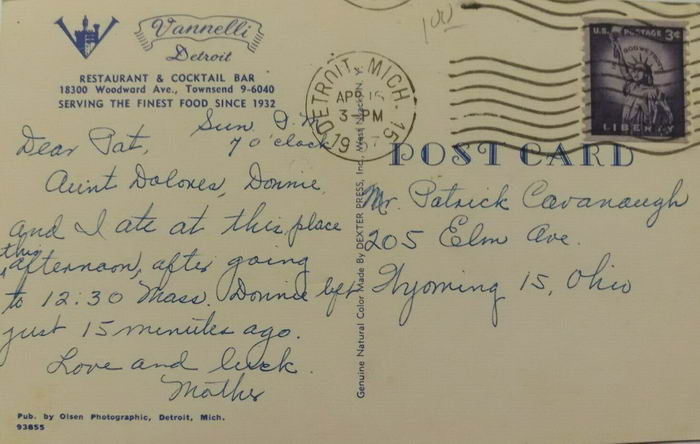 Vannelli
Detroit
RESTAURANT & COCKTAIL BAR
18300 Woodward Ave., Townsend 9-6040
SERVING THE FINEST FOOD SINCE 1932
Sun. P.M.
7 o'clock
Dear Pat,
Aunt Dolores, Donnie,
and I ate at this place
this
afternoon, after going
to 12:30 Mass. Donnie left
just 15 minutes ago.
Love and luck.
Mother
Pub. by Olsen Photographic, Detroit, Mich.
93855
Genuine Natural Color Made By DEXTER PRESS, Inc., West Nyack, N. Y.
1.00
DETROIT, MICH. 15
APR 15
3 - PM
1957
U.S. POSTAGE 3¢
IN GOD WE TRUST
LIBERTY
POST CARD
Mr. Patrick Cavanaugh
205 Elm Ave.
Wyoming 15, Ohio